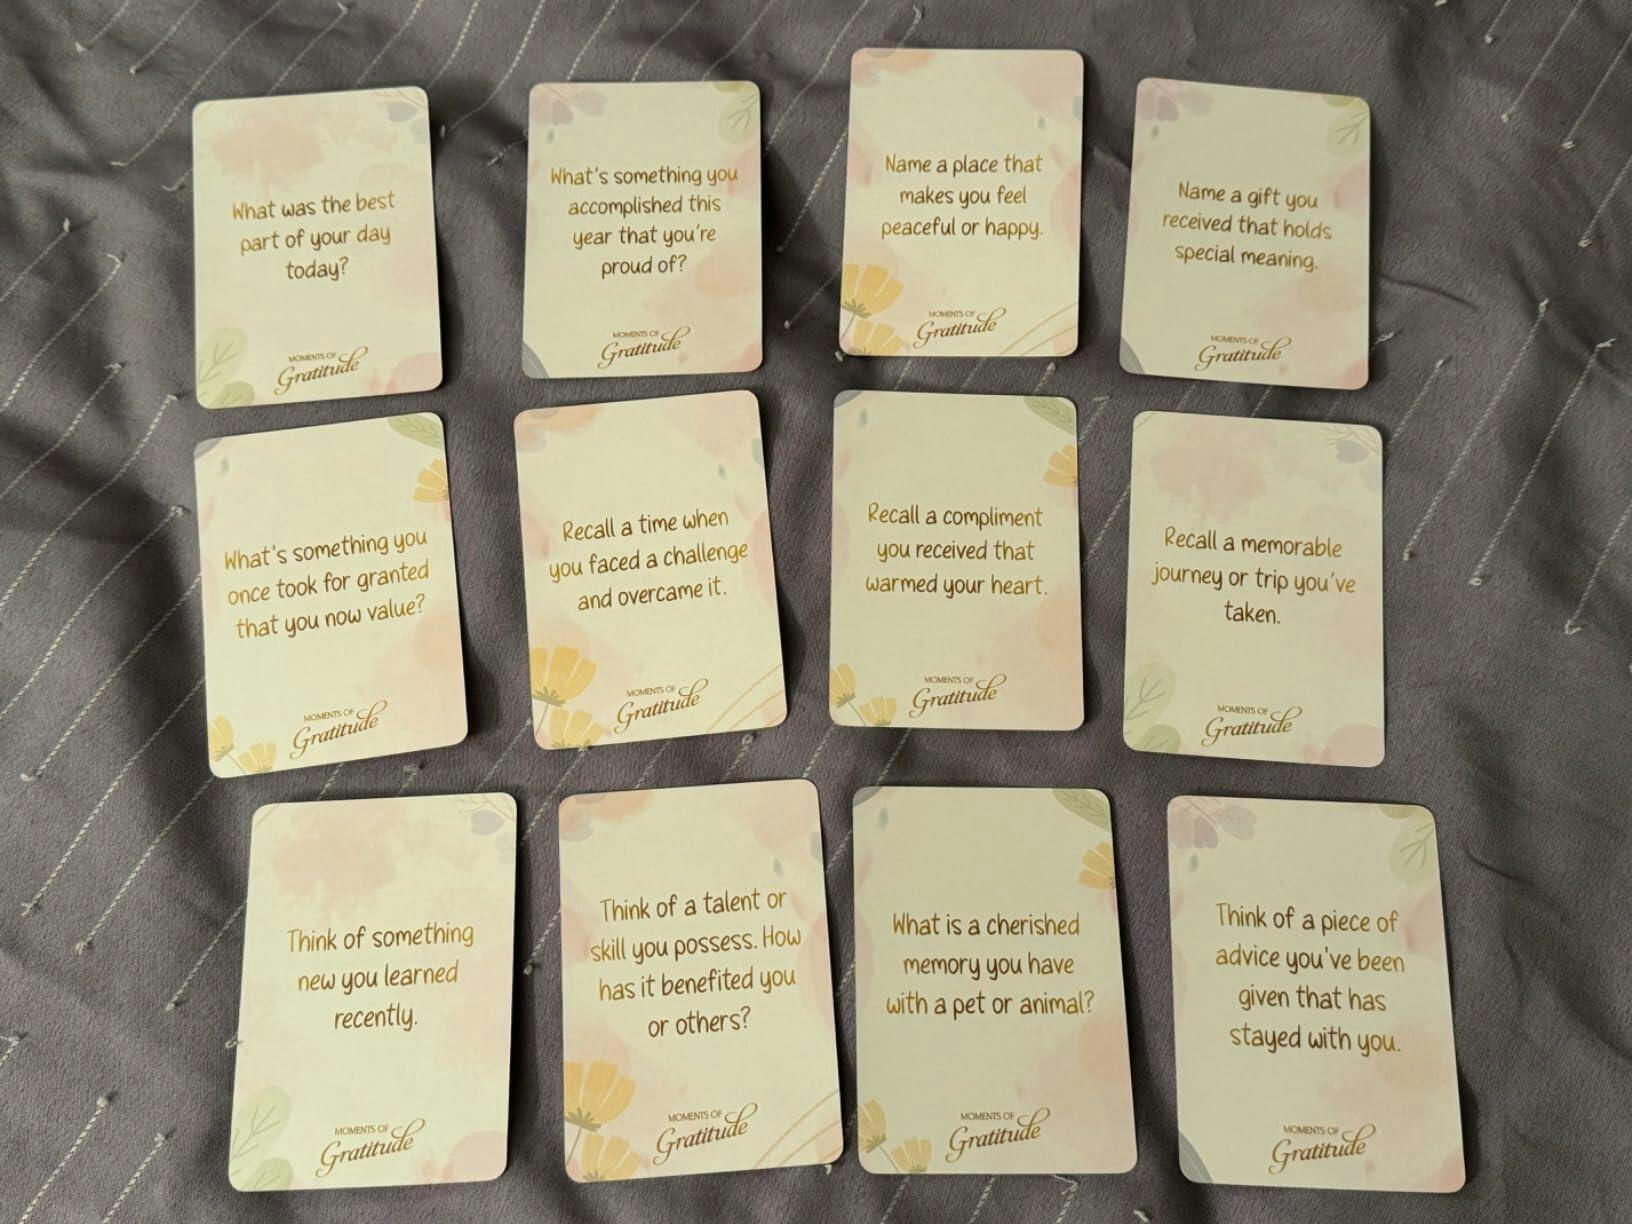 What was the best
part of your day
today?
MOMENTS OF
Gratitude
What's something you
accomplished this
year that you're
proud of?
MOMENTS OF
Gratitude
Name a place that
makes you feel
peaceful or happy.
MOMENTS OF
Gratitude
Name a gift you
received that holds
special meaning.
MOMENTS OF
Gratitude
What's something you
once took for granted
that you now value?
MOMENTS OF
Gratitude
Recall a time when
you faced a challenge
and overcame it.
MOMENTS OF
Gratitude
Recall a compliment
you received that
warmed your heart.
MOMENTS OF
Gratitude
Recall a memorable
journey or trip you've
taken.
MOMENTS OF
Gratitude
Think of something
new you learned
recently.
MOMENTS OF
Gratitude
Think of a talent or
skill you possess. How
has it benefited you
or others?
MOMENTS OF
Gratitude
What is a cherished
memory you have
with a pet or animal?
MOMENTS OF
Gratitude
Think of a piece of
advice you've been
given that has
stayed with you.
MOMENTS OF
Gratitude